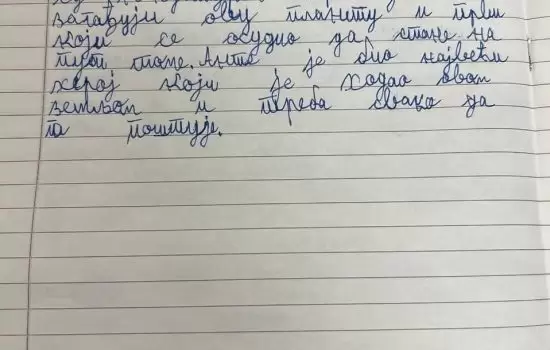 загађују ову планету и први
који се осудио да стане на
пут томе. Антић је био највећи
херој који је ходао овом
земљом и треба свако да
га поштује.